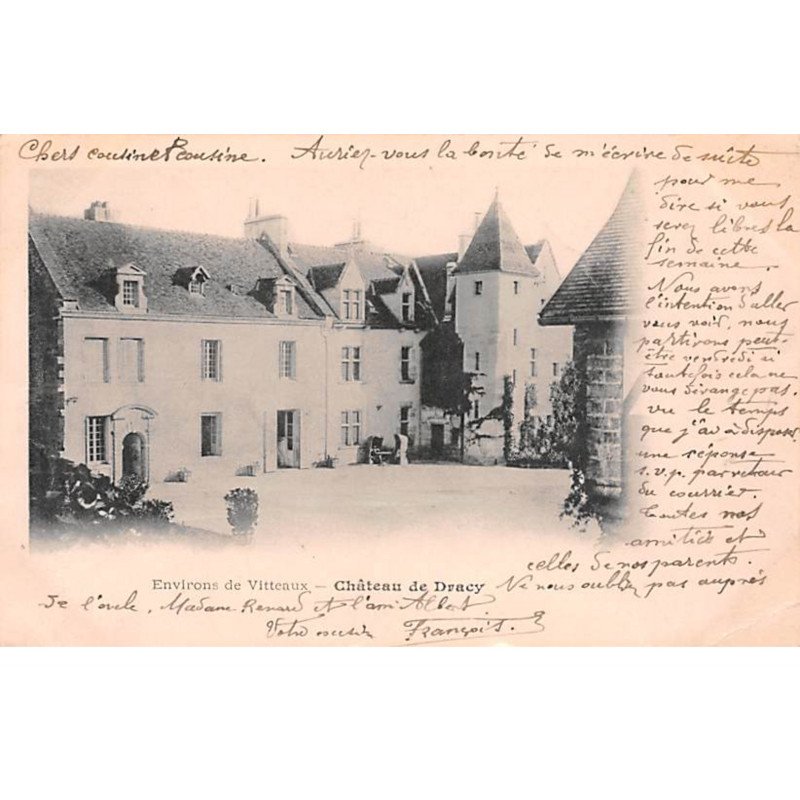 Chers cousin et cousine. Auriez-vous la bonté de m'écrire de suite
pour me
dire si vous
serez libres la
fin de cette
semaine.
Nous avons
l'intention d'aller
vous voir, nous
partirons peut-
être vendredi si
toutefois cela ne
vous dérange pas.
vu le temps
que j'ai à disposer
une réponse
s.v.p. par retour
du courrier.
Toutes nos
amitiés et
celles de nos parents.
Environs de Vitteaux — Château de Dracy
Ne nous oubliez pas auprès
de l'oncle, Madame Renard et l'ami Albert
Votre cousin François.